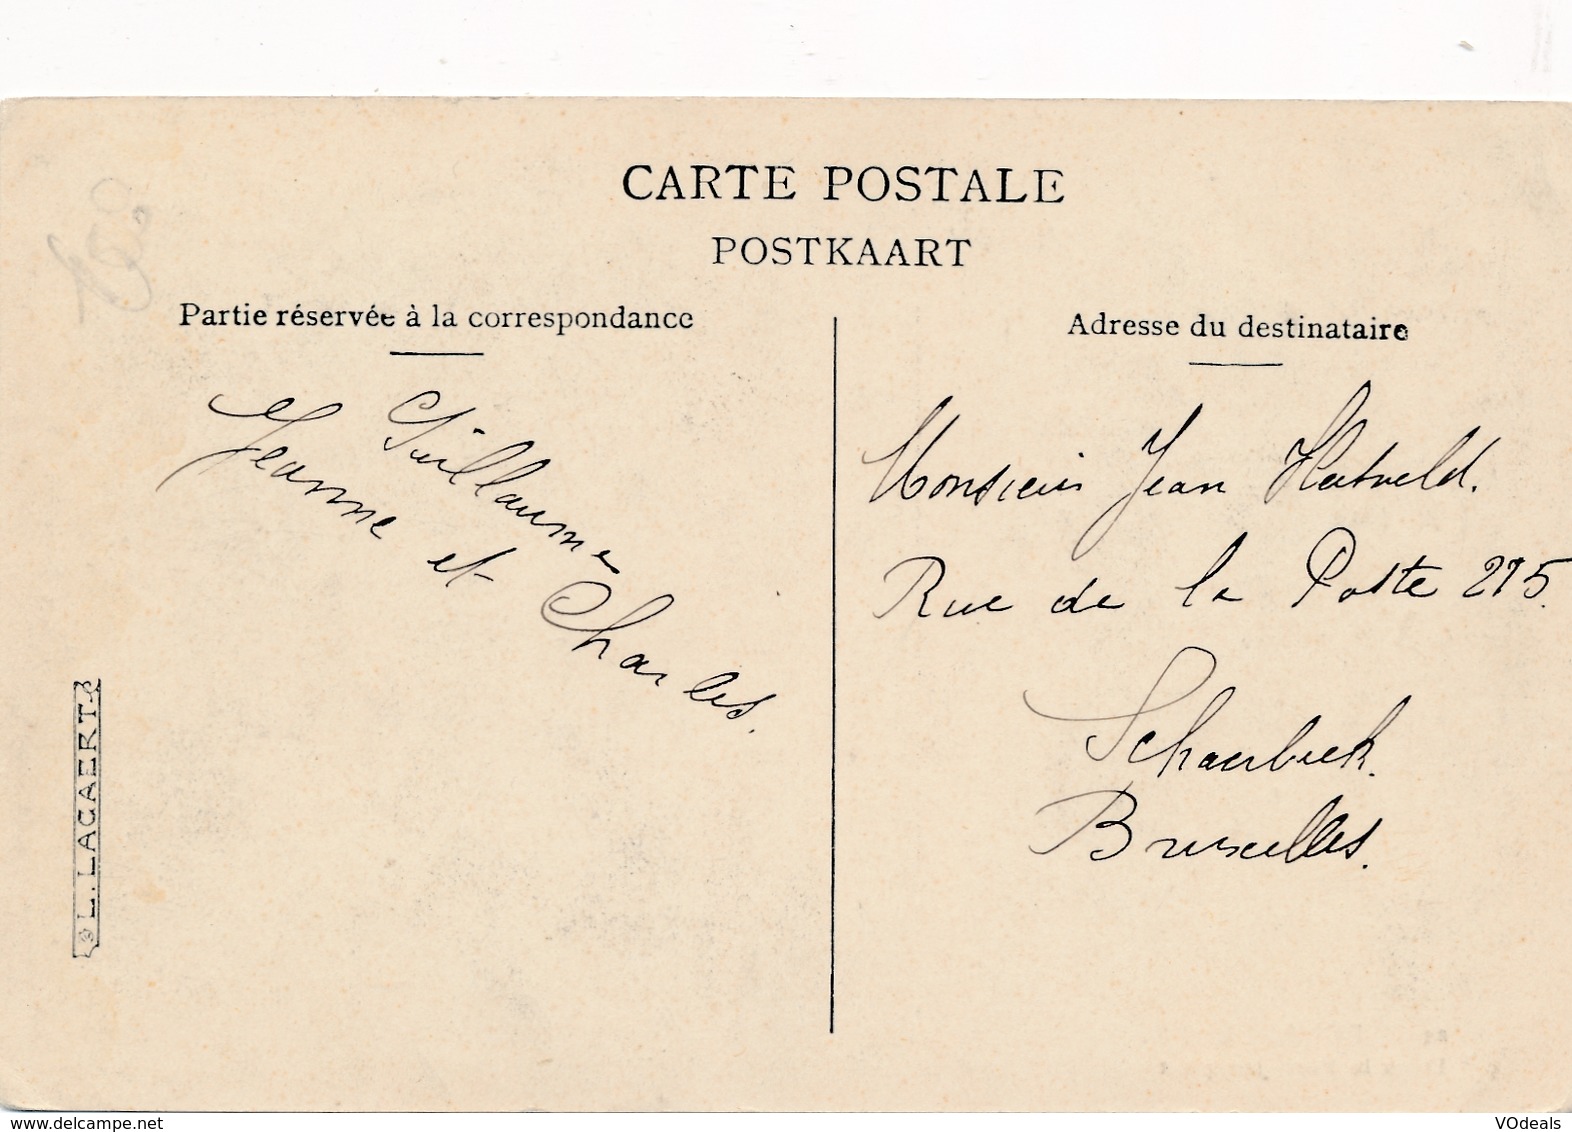 CARTE POSTALE
POSTKAART
Partie réservée à la correspondance
Adresse du destinataire
Guillaume
Jeanne et Charles.
Monsieur Jean
Rue de la Poste 215.
Schaerbeek.
Bruxelles.
L. LAGAERT
www.delcampe.net
VOdeals